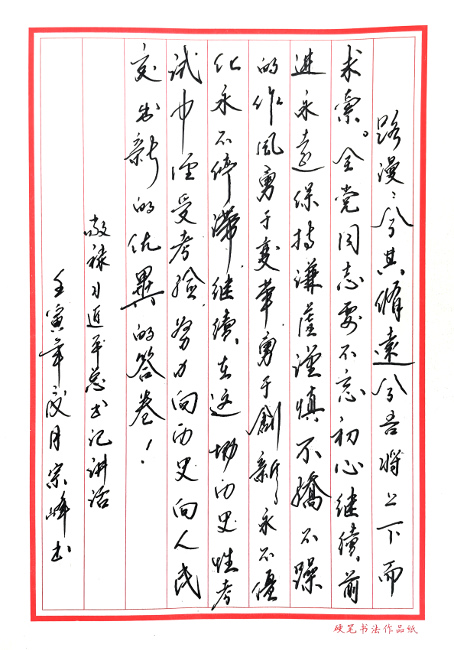 路漫々兮其脩远兮吾将上下而
求索。全党同志要不忘初心继续前
进永远保持谦虚谨慎不骄不躁
的作风勇于变革勇于创新永不僵
化永不停滞继续在这场历史性考
试中经受考验努力向历史向人民
交出新的优异的答卷！
敬录习近平总书记讲话
壬寅年 月宗峰书
硬笔书法作品纸